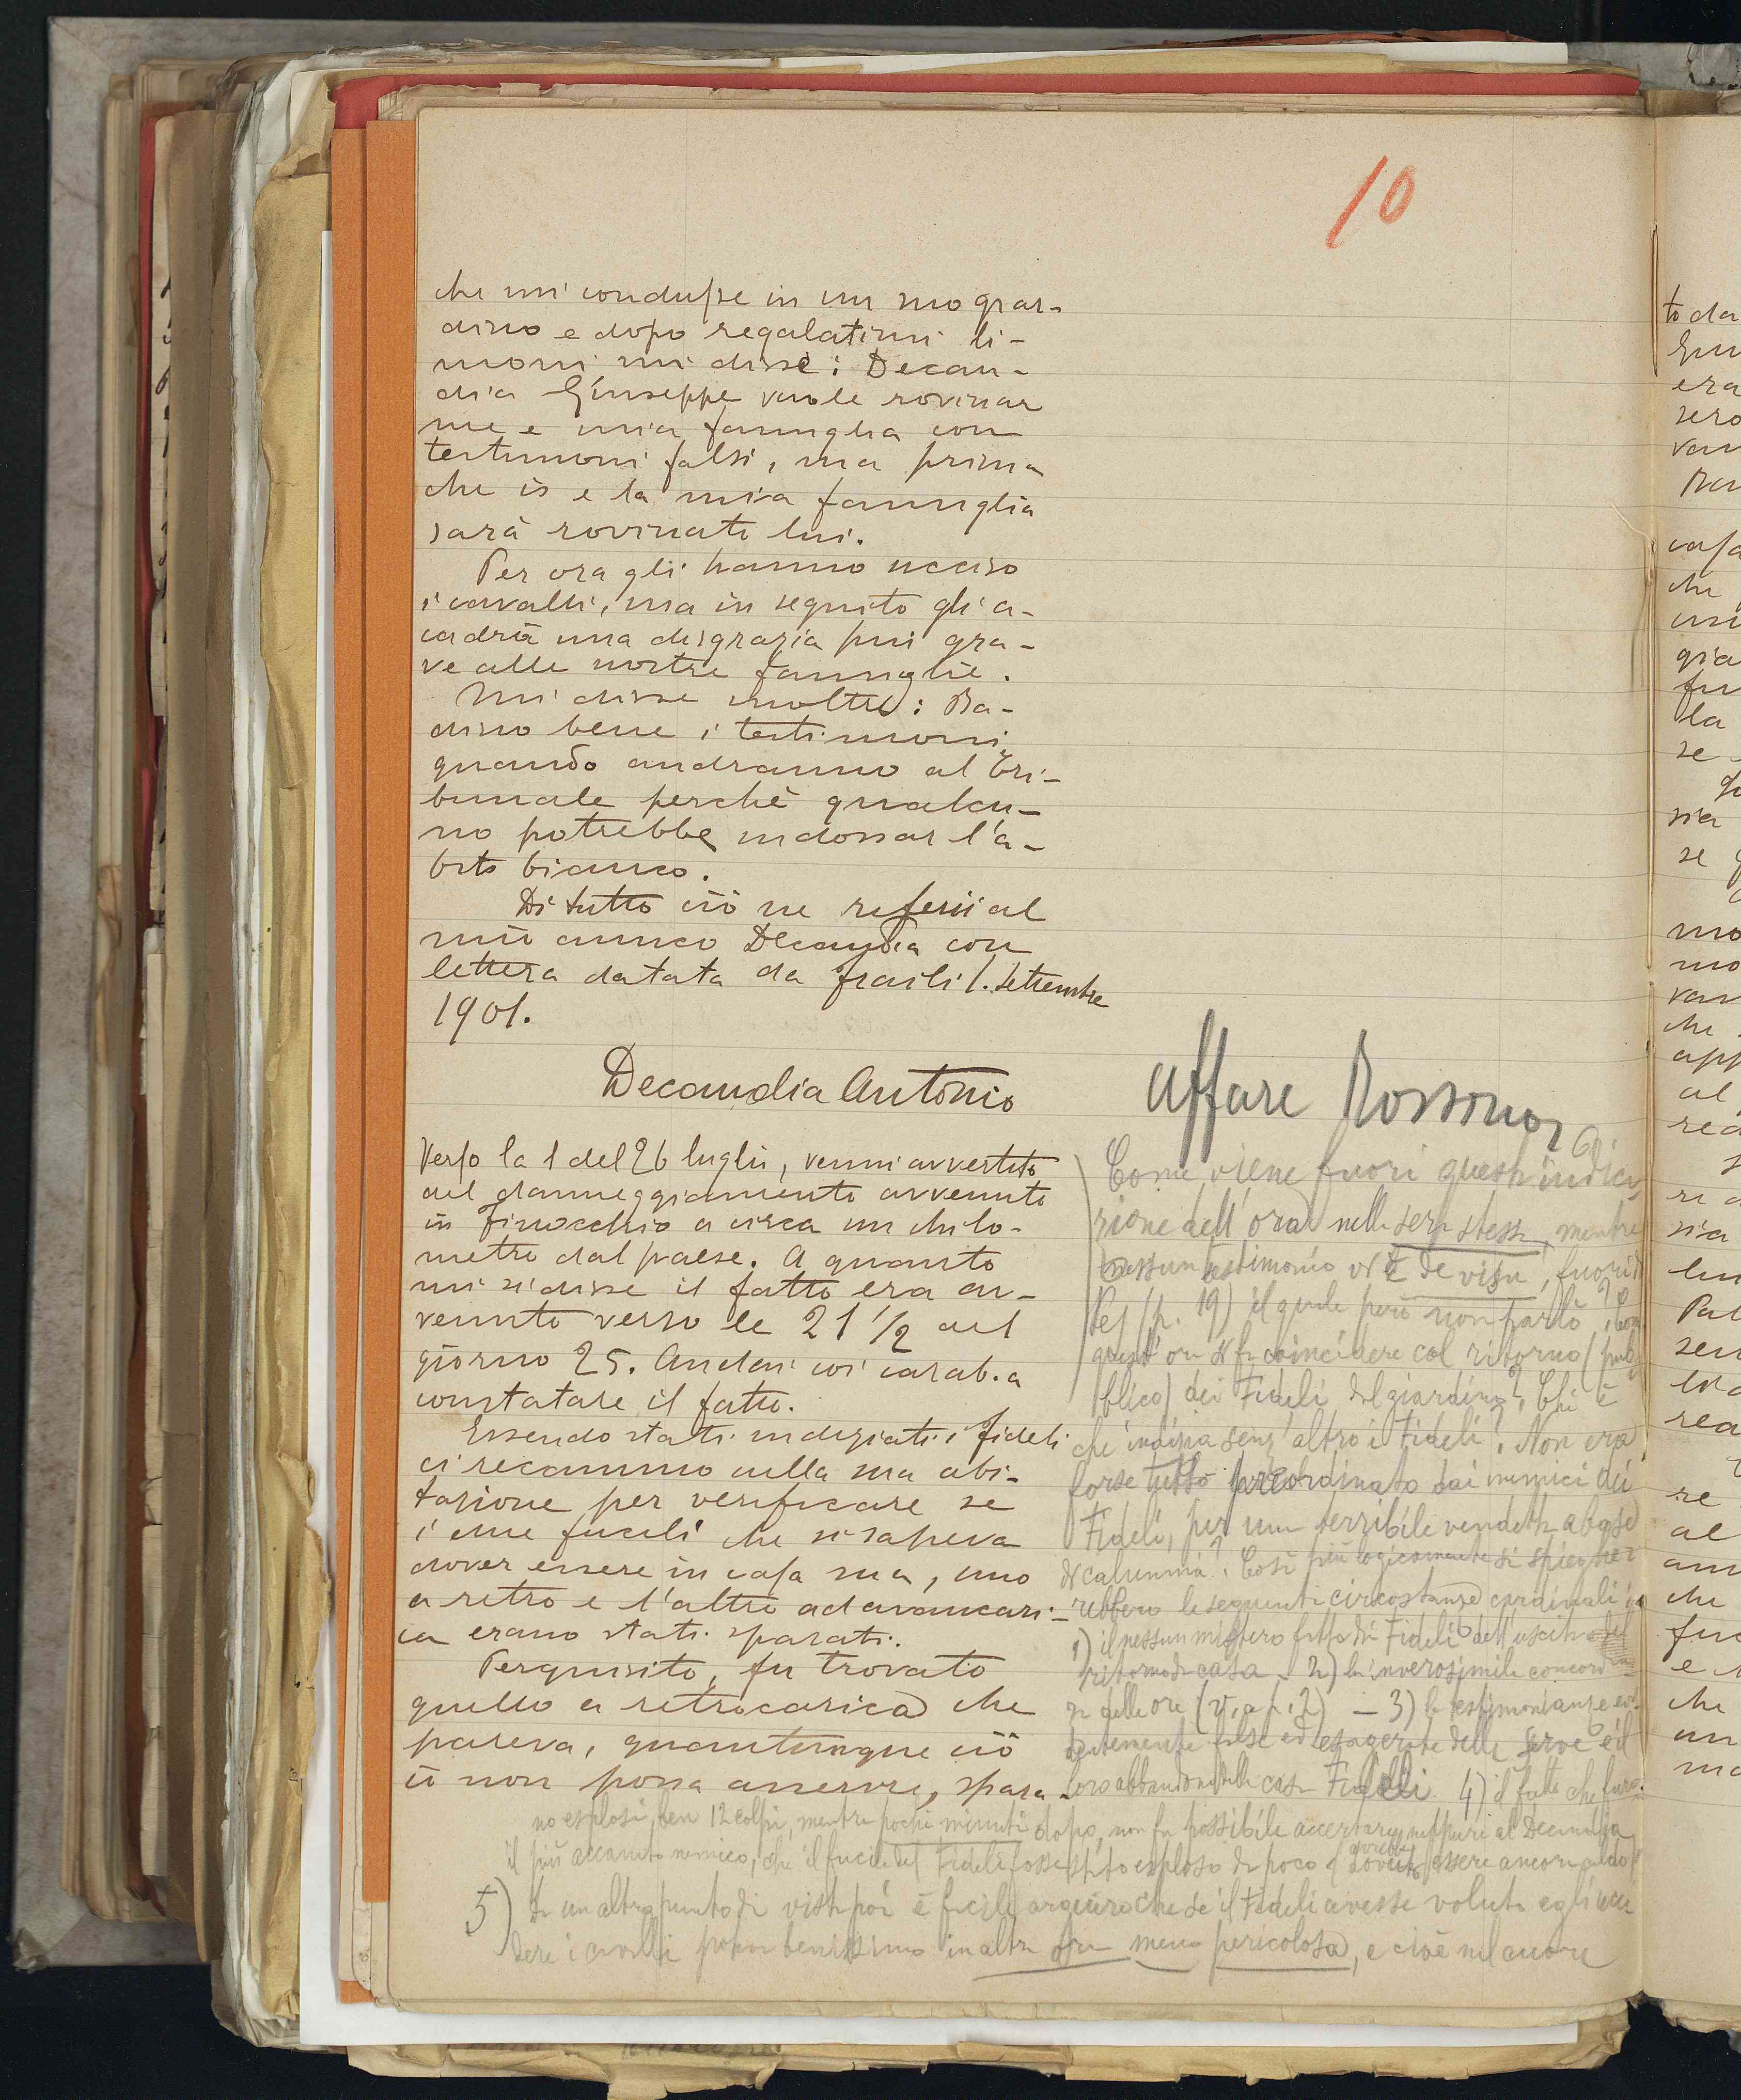 10
che mi condusse in un suo giar-
dino e dopo regalatimi li-
moni mi disse: Decan-
dia Giuseppe vuole rovinar
me e mia famiglia con
testimoni falsi, ma prima
che io e la mia famiglia
sarà rovinato lui.
Per ora gli hanno ucciso
i cavalli, ma in seguito gli a-
cadrà una disgrazia più gra-
ve alle nostre famiglie.
Mi disse inoltre: Ba-
dino bene i testimoni
quando andranno al Tri-
bunale perchè qualcu-
no potrebbe indossar l'a-
bito bianco.
Di tutto ciò ne riferii al
mio amico Decandia con
lettera datata da 1. Settembre
1901.
Decandia Antonio
Verso la 1 del 26 luglio, venni avvertito
del danneggiamento avvenuto
in Finocchio a circa un chilo-
metro dal paese. A quanto
mi si disse il fatto era av-
venuto verso le 21 1/2 del
giorno 25. Andai coi carab. a
constatare il fatto.
Essendo stati indiziati i Fideli
ci recammo nella sua abi-
tazione per verificare se
i due fucili che si sapeva
dover essere in casa sua, uno
a retro e l'altro ad avancari-
ca erano stati sparati.
Perquisito, fu trovato
quello a retrocarica che
pareva, quantunque ciò
io non possa asserire, spara-
Affare Rossano
Come viene fuori questa indica-
zione dell'ora nella sera stessa, mentre
nessun testimonio vi è de visu, fuori
(p. 19) il quale però non parlò?
quest'ora si fa coincidere col ritorno (pub-
blico) dei Fideli dal giardino? Chi è
che indizia senz'altro i Fideli? Non era
forse tutto preordinato dai nemici dei
Fideli, per una terribile vendetta a base
di calunnia? Così più logicamente si spieghe-
rebbero le seguenti circostanze cardinali:
1) il nessun mistero fatto dai Fideli dell'uscita e del
ritorno da casa - 2) la inverosimile concordan-
za delle ore (v. a p. 2) - 3) le testimonianze evi-
dentemente false ed esagerate delle serve e il
loro abbandono della casa Fideli 4) il fatto che furo-
no esplosi ben 12 colpi, mentre pochi minuti dopo, non fu possibile accertare neppure al Decandia
il più accanito nemico, che il fucile del Fideli fosse stato esploso da poco e dovesse essere ancora caldo
5) Da un altro punto di vista poi è facile arguire che se il Fideli avesse voluto egli ucci-
dere i cavalli poteva benissimo in altra ora meno pericolosa, e cioè nel cuore